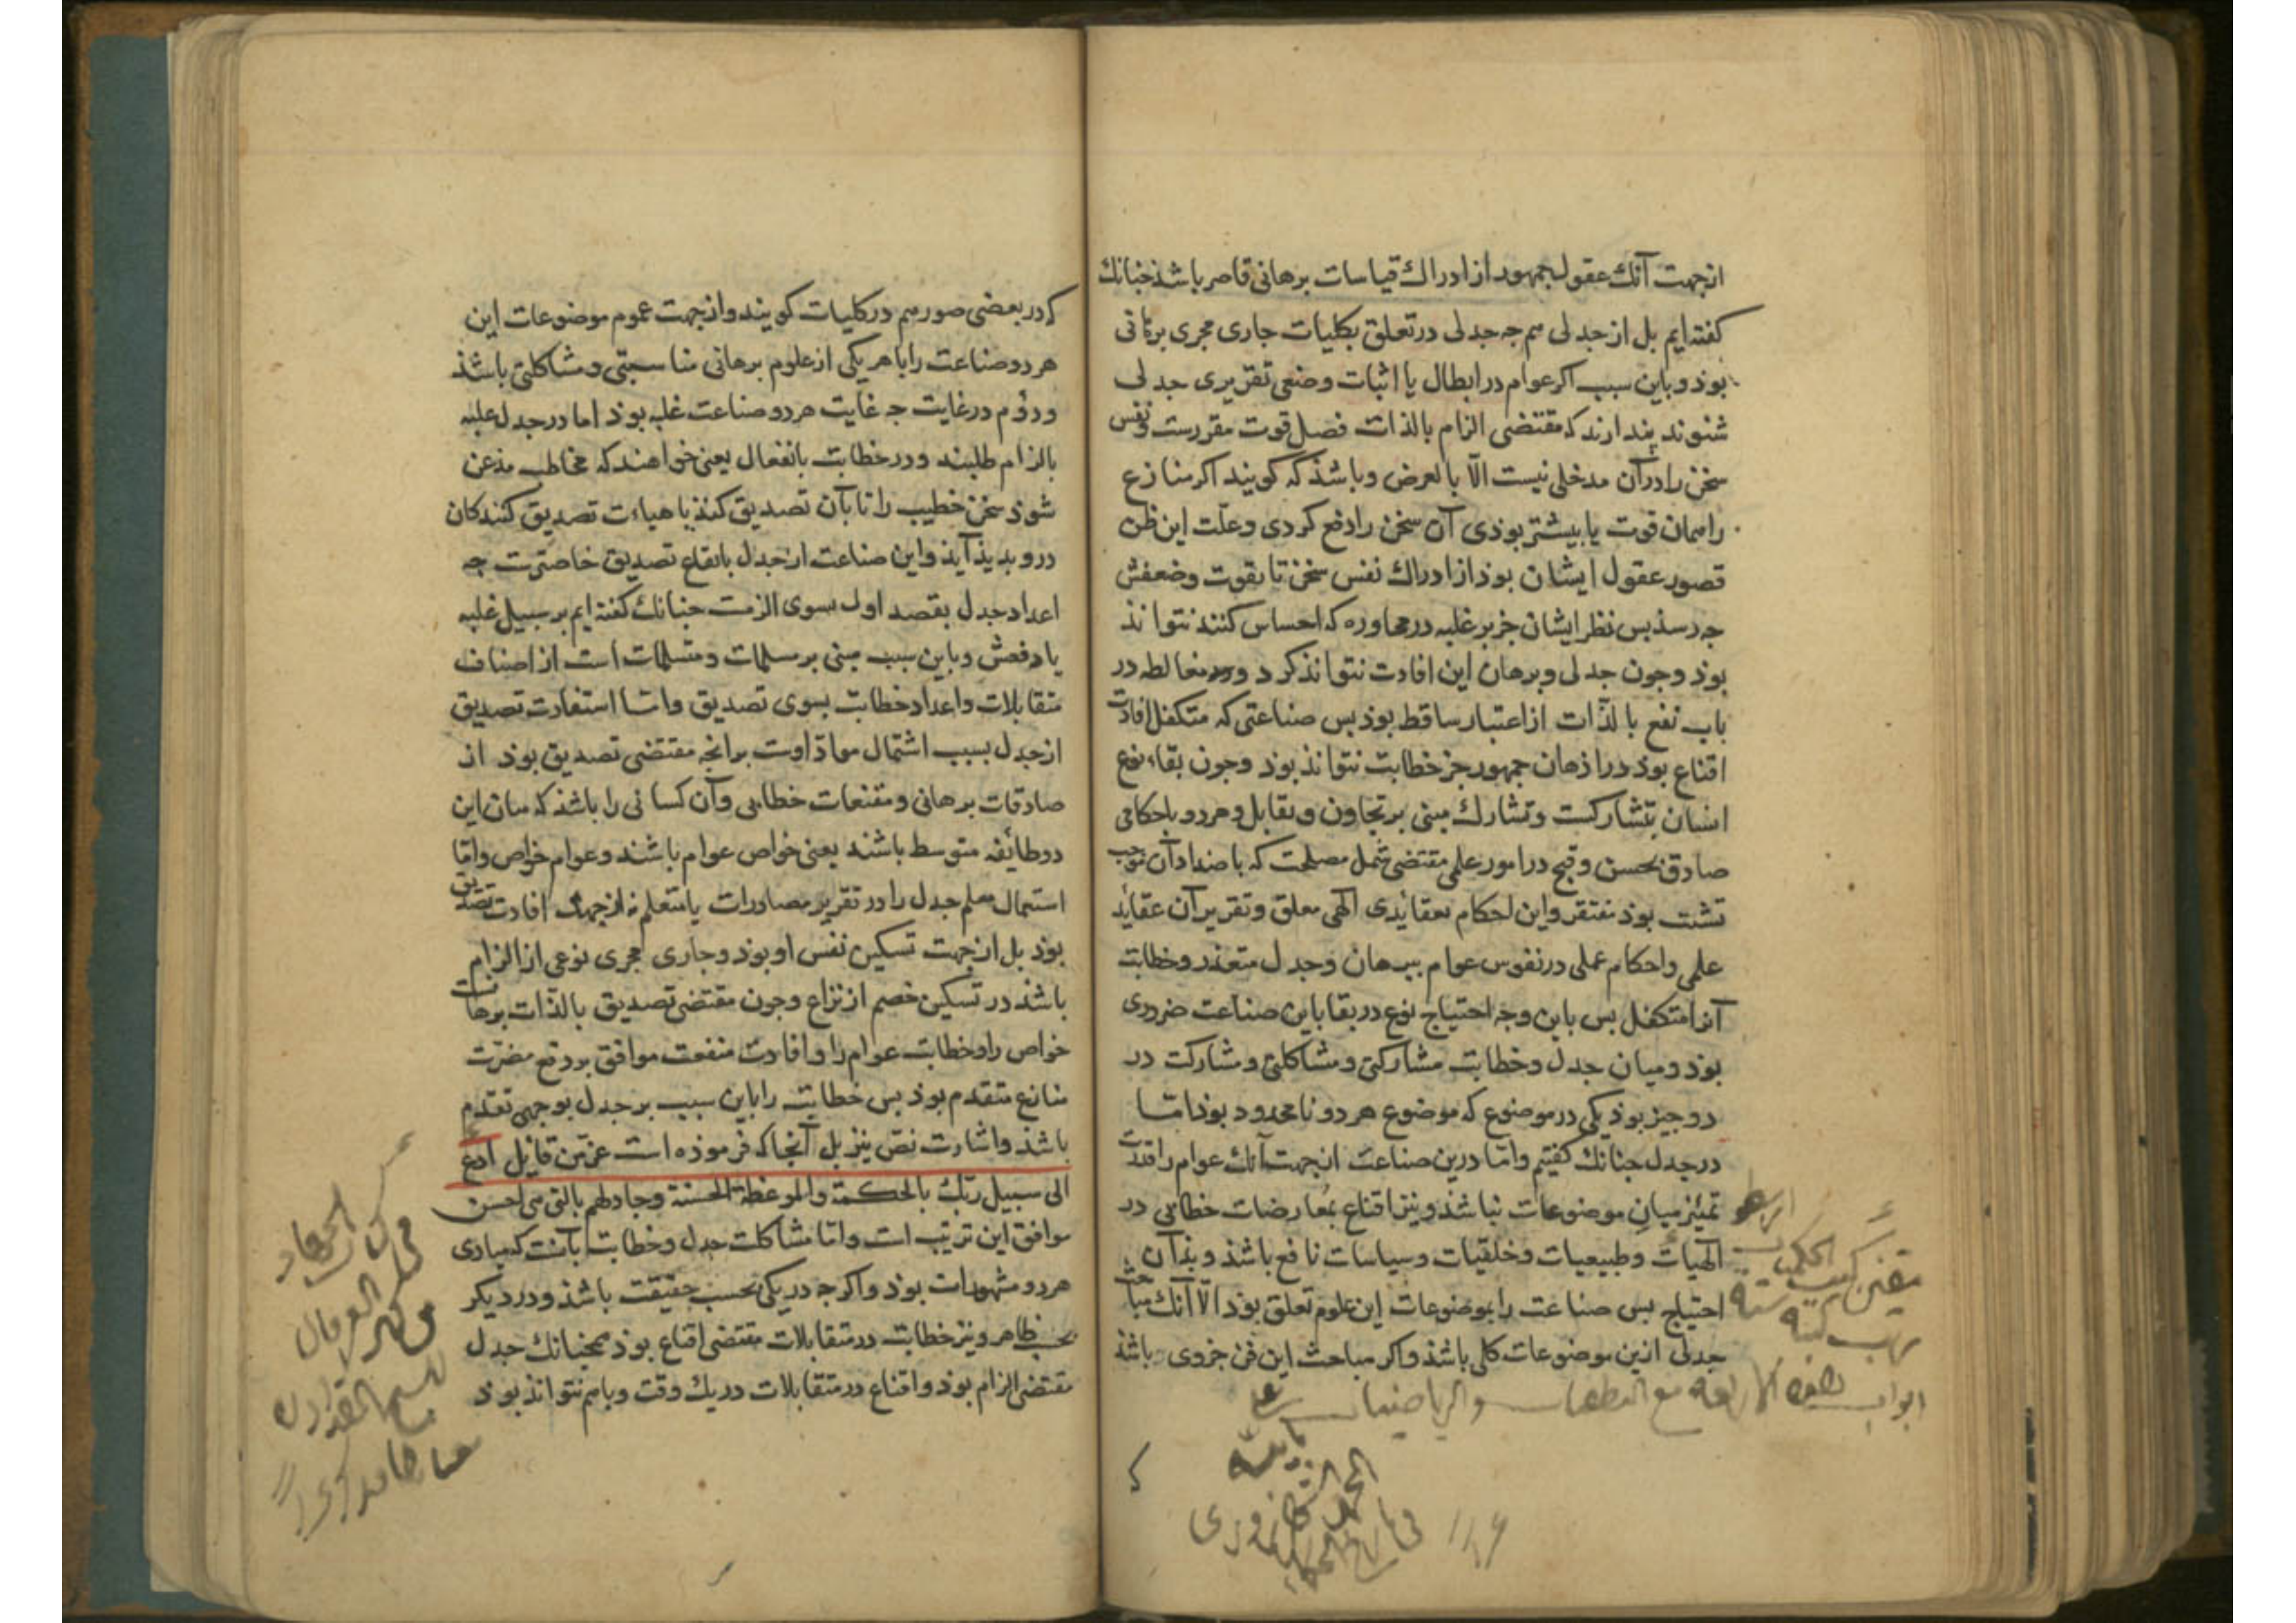 ازجهت آنك عقول جمهور از ادراك قياسات برهانی قاصر باشذ چنانك
كفته ايم بل از جدلی هم چه جدلی در تعلق بكليات جاری مجری برهانی
بوذ و باين سبب اكر عوام در ابطال يا اثبات وضعی تقريری جدلی
شنوند پندارند كه مقتضی الزام بالذات فصل قوت مقررست و نفس
سخن را در آن مدخلی نيست الّا بالعرض و باشذ كه كويند اكر منازع
را همان قوت يا بيشتر بوذی آن سخن را دفع كردی و علّت اين ظن
قصور عقول ايشان بوذ از ادراك نفس سخن تا بقوت و ضعفش
چه رسذ بس نظر ايشان جز بر غلبه در محاوره كه احساس كنند نتوانذ
بوذ و چون جدلی و برهان اين افادت نتوانذ كرد و مغالطه در
باب نفع بالذّات از اعتبار ساقط بوذ بس صناعتی كه متكفل افادت
اقناع بوذ در اذهان جمهور جز خطابت نتوانذ بوذ و چون بقاء نوع
انسان بتشاركست و تشارك مبنی بر تعاون و تقابل و هر دو باحكامی
صادق بحسن و قبح در امور علمی مقتضی شمل مصلحت كه باضداد آن موجب
تشتت بوذ مفتقر و اين احكام بعقايدی الهی معلق و تقرير آن عقايد
علمی و احكام عملی در نفوس عوام ببرهان و جدل متعذر و خطابت
آنرا متكفل بس باين وجه احتياج نوع در بقا باين صناعت ضروری
بوذ و ميان جدل و خطابت مشاركتی و مشاكلتی و مشاركت در
دو چيز بوذ يكی در موضوع كه موضوع هر دو نا محدود بوذ امّا
در جدل چنانك كفتيم و امّا درين صناعت ازجهت آنك عوام را قدرت
تمييز ميان موضوعات نباشذ و نيز اقناع بمعارضات خطابی در
الهيات و طبيعيات و خلقيات و سياسات نافع باشذ و بذآن
احتياج بس صناعت را بموضوعات اين علوم تعلق بوذ الّا آنك مباحث
جدلی ازين موضوعات كلی باشذ و اكر مباحث اين فن جزوی باشذ
١١٦
كه در بعضی صور هم در كليات كويند و ازجهت عموم موضوعات اين
هر دو صناعت را با هر يكی از علوم برهانی مناسبتی و مشاكلتی باشذ
و دوّم در غايت چه غايت هر دو صناعت غلبه بوذ اما در جدل غلبه
بالزام طلبند و در خطابت بانفعال يعنی خواهند كه مخاطب مذعن
شوذ سخن خطيب را تا بآن تصديق كنذ يا هيات تصديق كنندكان
درو بديذ آيذ و اين صناعت از جدل بايقاع تصديق خاصترست چه
اعداد جدل بقصد اول بسوی الزمت چنانك كفته ايم بر سبيل غلبه
يا دفعش و باين سبب مبنی بر مسلمات و متسلمات است از اصناف
متقابلات و اعداد خطابت بسوی تصديق و امّا استفادت تصديق
از جدل بسبب اشتمال موادّ اوست بر انچه مقتضی تصديق بوذ از
صادقات برهانی و مقنعات خطابی و آن كسانی را باشذ كه ميان اين
دو طائفه متوسط باشند يعنی خواص عوام باشند و عوام خواص و امّا
استعمال معلم جدل را در تقرير مصادرات با متعلم نه ازجهت افادت تصديق
بوذ بل ازجهت تسكين نفس او بوذ و جاری مجری نوعی از الزام
باشذ در تسكين خصم از نزاع و چون مقتضی تصديق بالذّات برهانست
خواص را و خطابت عوام را و افادت منفعت موافق بر دفع مضرّت
منازع متقدم بوذ بس خطابت را باين سبب بر جدل بوجهی تقدم
باشذ و اشارت نصّ تنزيل آنجا كه فرموذه است عزّ من قايل ادع
الی سبيل ربّك بالحكمة والموعظة الحسنة وجادلهم بالتی هی احسن
موافق اين ترتيب است و امّا مشاكلت جدل و خطابت بآنست كه مبادی
هر دو مشهورات بوذ و اكر چه در يكی بحسب حقيقت باشذ و در ديكر
بحسب ظاهر و نيز خطابت در متقابلات مقتضی اقناع بوذ همچنانك جدل
مقتضی الزام بوذ و اقناع در متقابلات در يك وقت و با هم نتوانذ بوذ